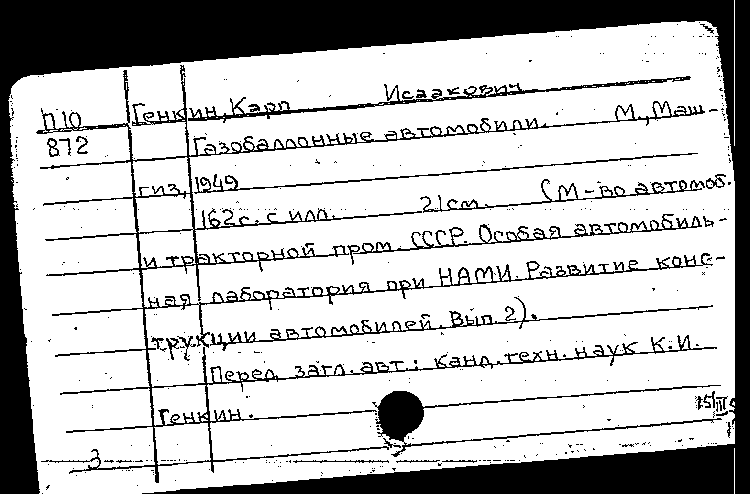 П10 Генкин, Карп Исаакович
872 Газобаллонные автомобили. М., Маш-
гиз, 1949
162с. с илл. 21см. (М-во автомоб.
и тракторной пром. СССР. Особая автомобиль-
ная лаборатория при НАМИ. Развитие конс-
трукции автомобилей. Вып. 2).
Перед загл. авт.: канд. техн. наук К.И.
Генкин.
15/III
3